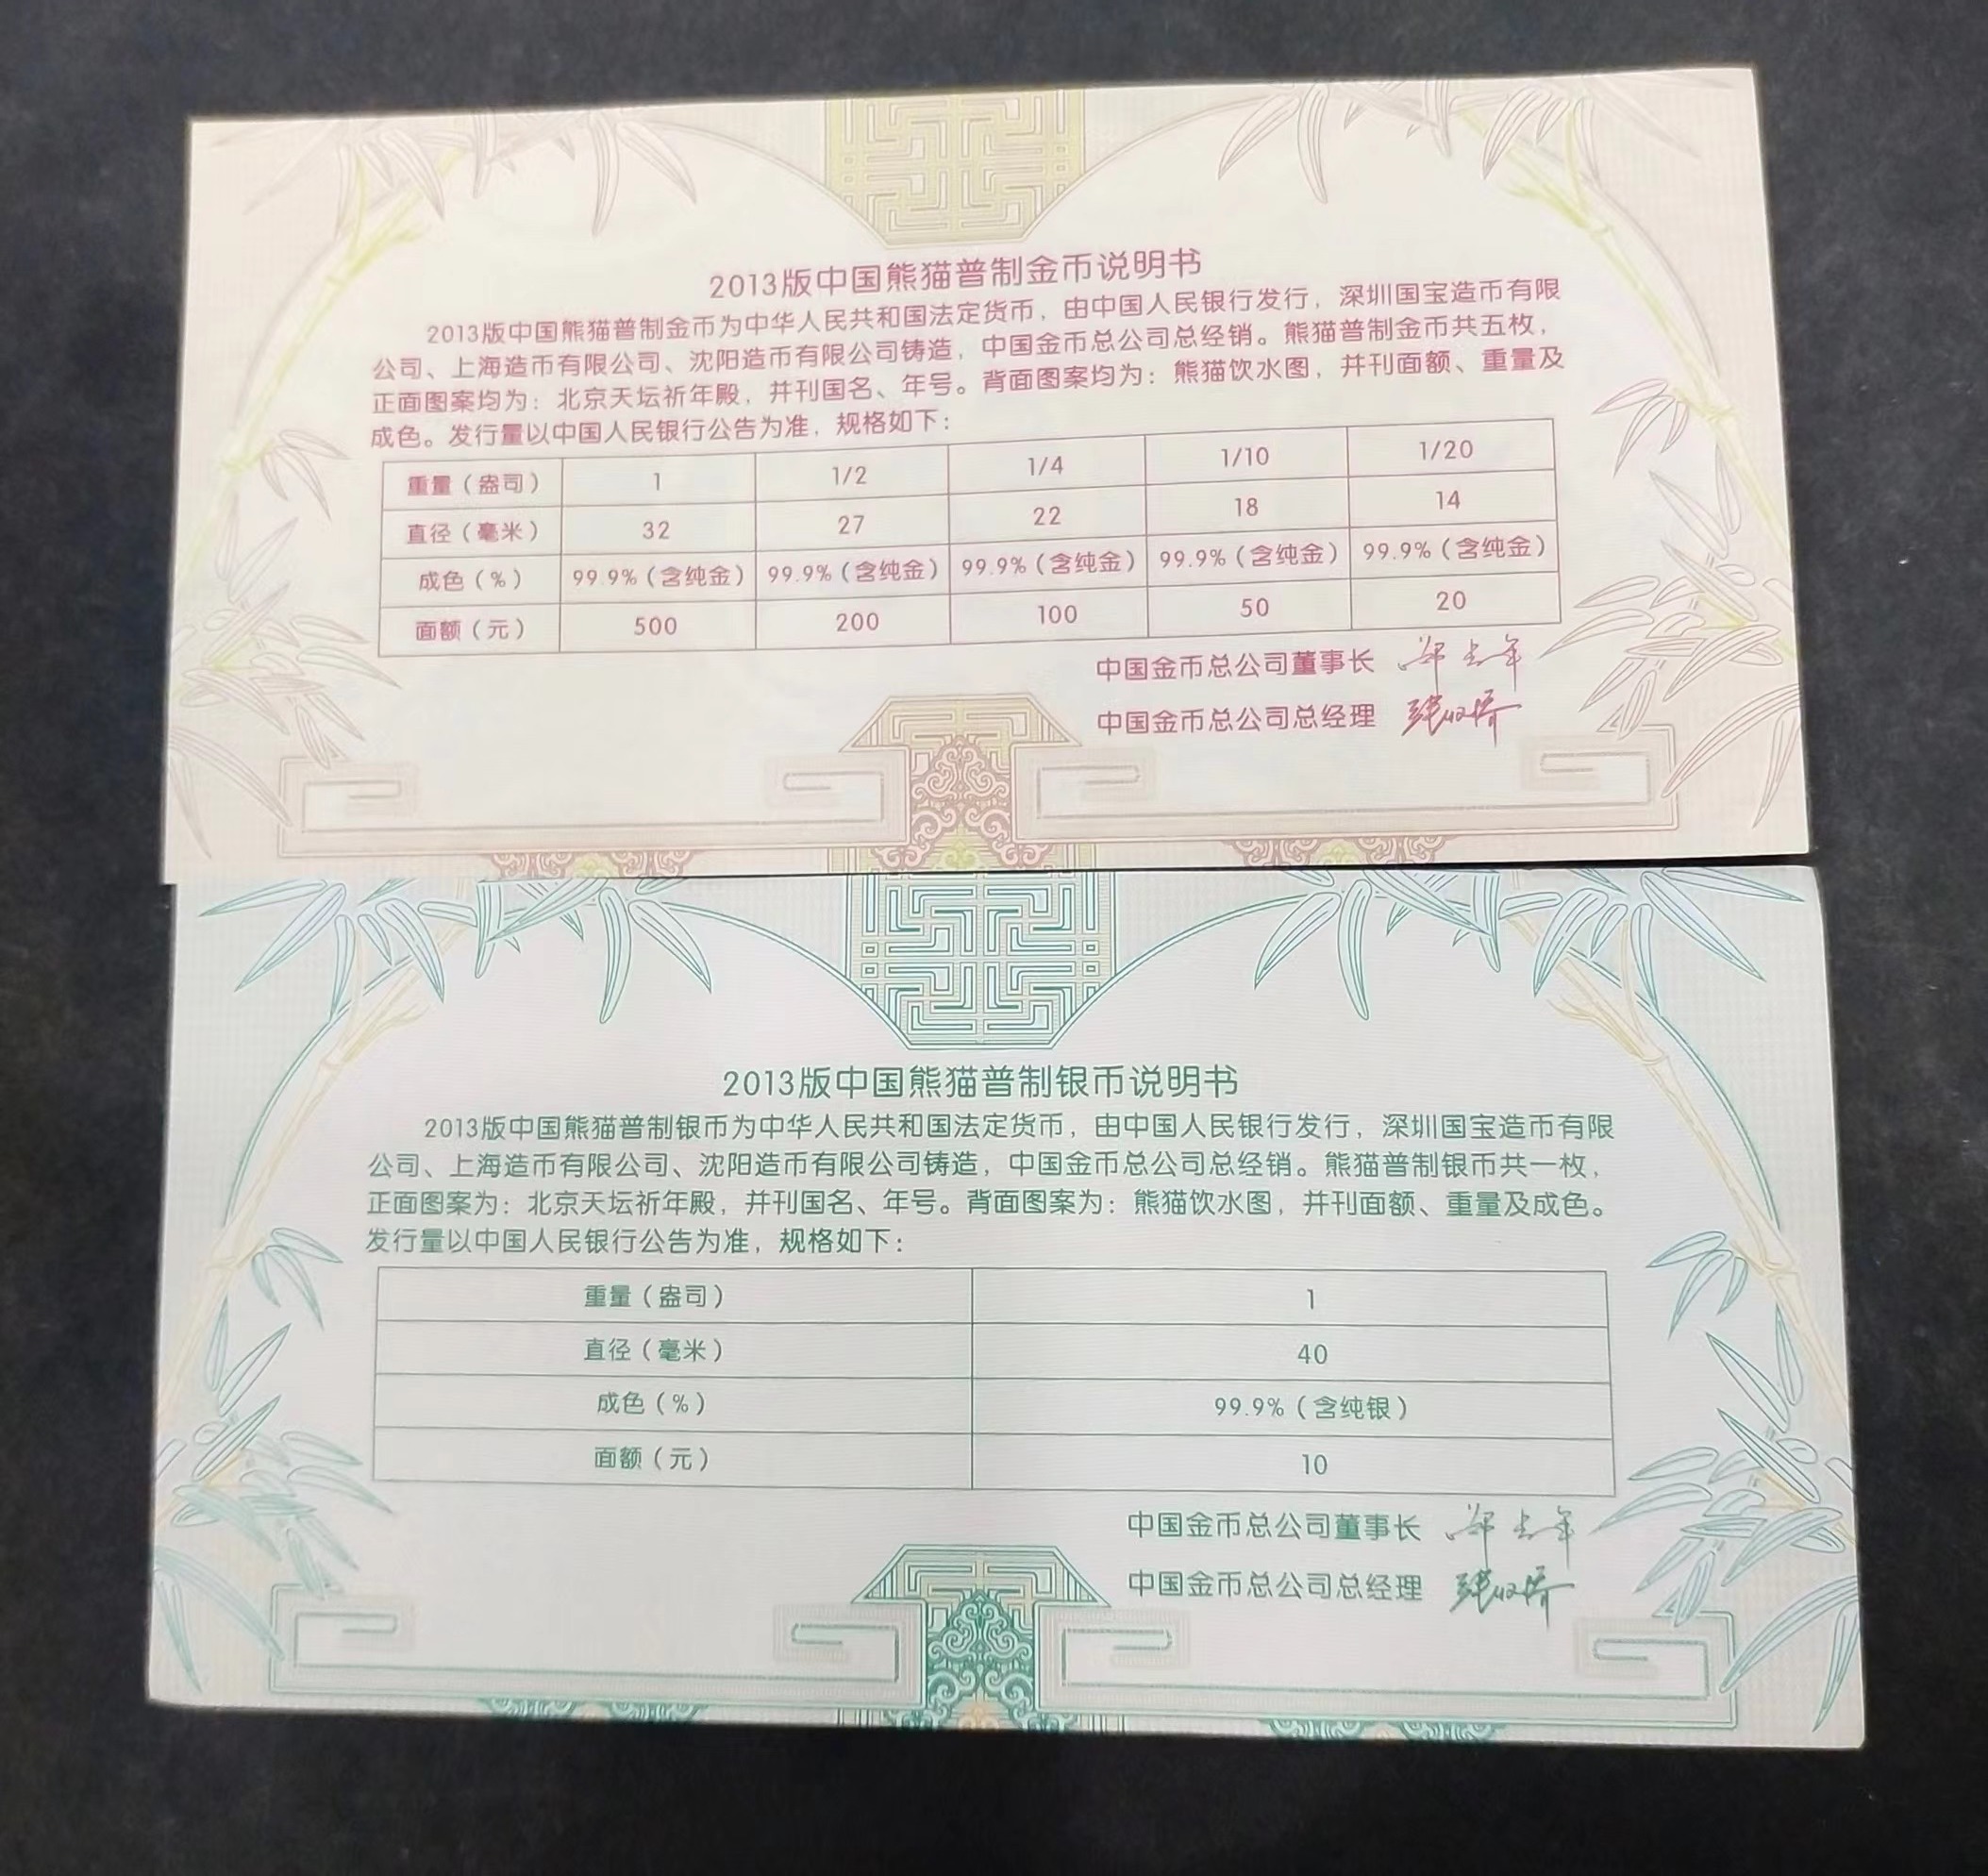 2013版中国熊猫普制金币说明书
2013版中国熊猫普制金币为中华人民共和国法定货币，由中国人民银行发行，深圳国宝造币有限
公司、上海造币有限公司、沈阳造币有限公司铸造，中国金币总公司总经销。熊猫普制金币共五枚，
正面图案均为：北京天坛祈年殿，并刊国名、年号。背面图案均为：熊猫饮水图，并刊面额、重量及
成色。发行量以中国人民银行公告为准，规格如下：
重量（盎司） 1 1/2 1/4 1/10 1/20
直径（毫米） 32 27 22 18 14
成色（%） 99.9%（含纯金） 99.9%（含纯金） 99.9%（含纯金） 99.9%（含纯金） 99.9%（含纯金）
面额（元） 500 200 100 50 20
中国金币总公司董事长
中国金币总公司总经理
2013版中国熊猫普制银币说明书
2013版中国熊猫普制银币为中华人民共和国法定货币，由中国人民银行发行，深圳国宝造币有限
公司、上海造币有限公司、沈阳造币有限公司铸造，中国金币总公司总经销。熊猫普制银币共一枚，
正面图案为：北京天坛祈年殿，并刊国名、年号。背面图案为：熊猫饮水图，并刊面额、重量及成色。
发行量以中国人民银行公告为准，规格如下：
重量（盎司） 1
直径（毫米） 40
成色（%） 99.9%（含纯银）
面额（元） 10
中国金币总公司董事长
中国金币总公司总经理